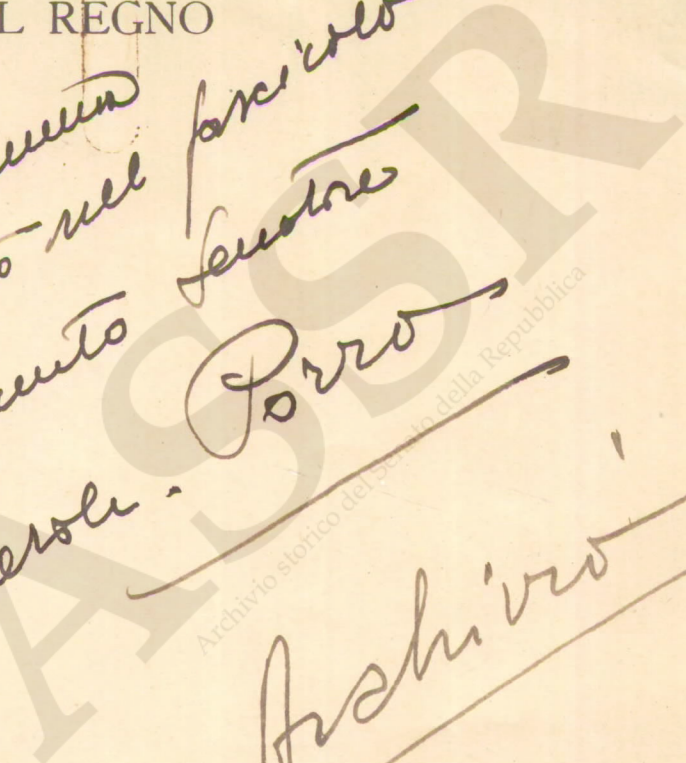 L REGNO
nel fascicolo
Senatore
Porro
Archivio
ASSR
Archivio storico del Senato della Repubblica